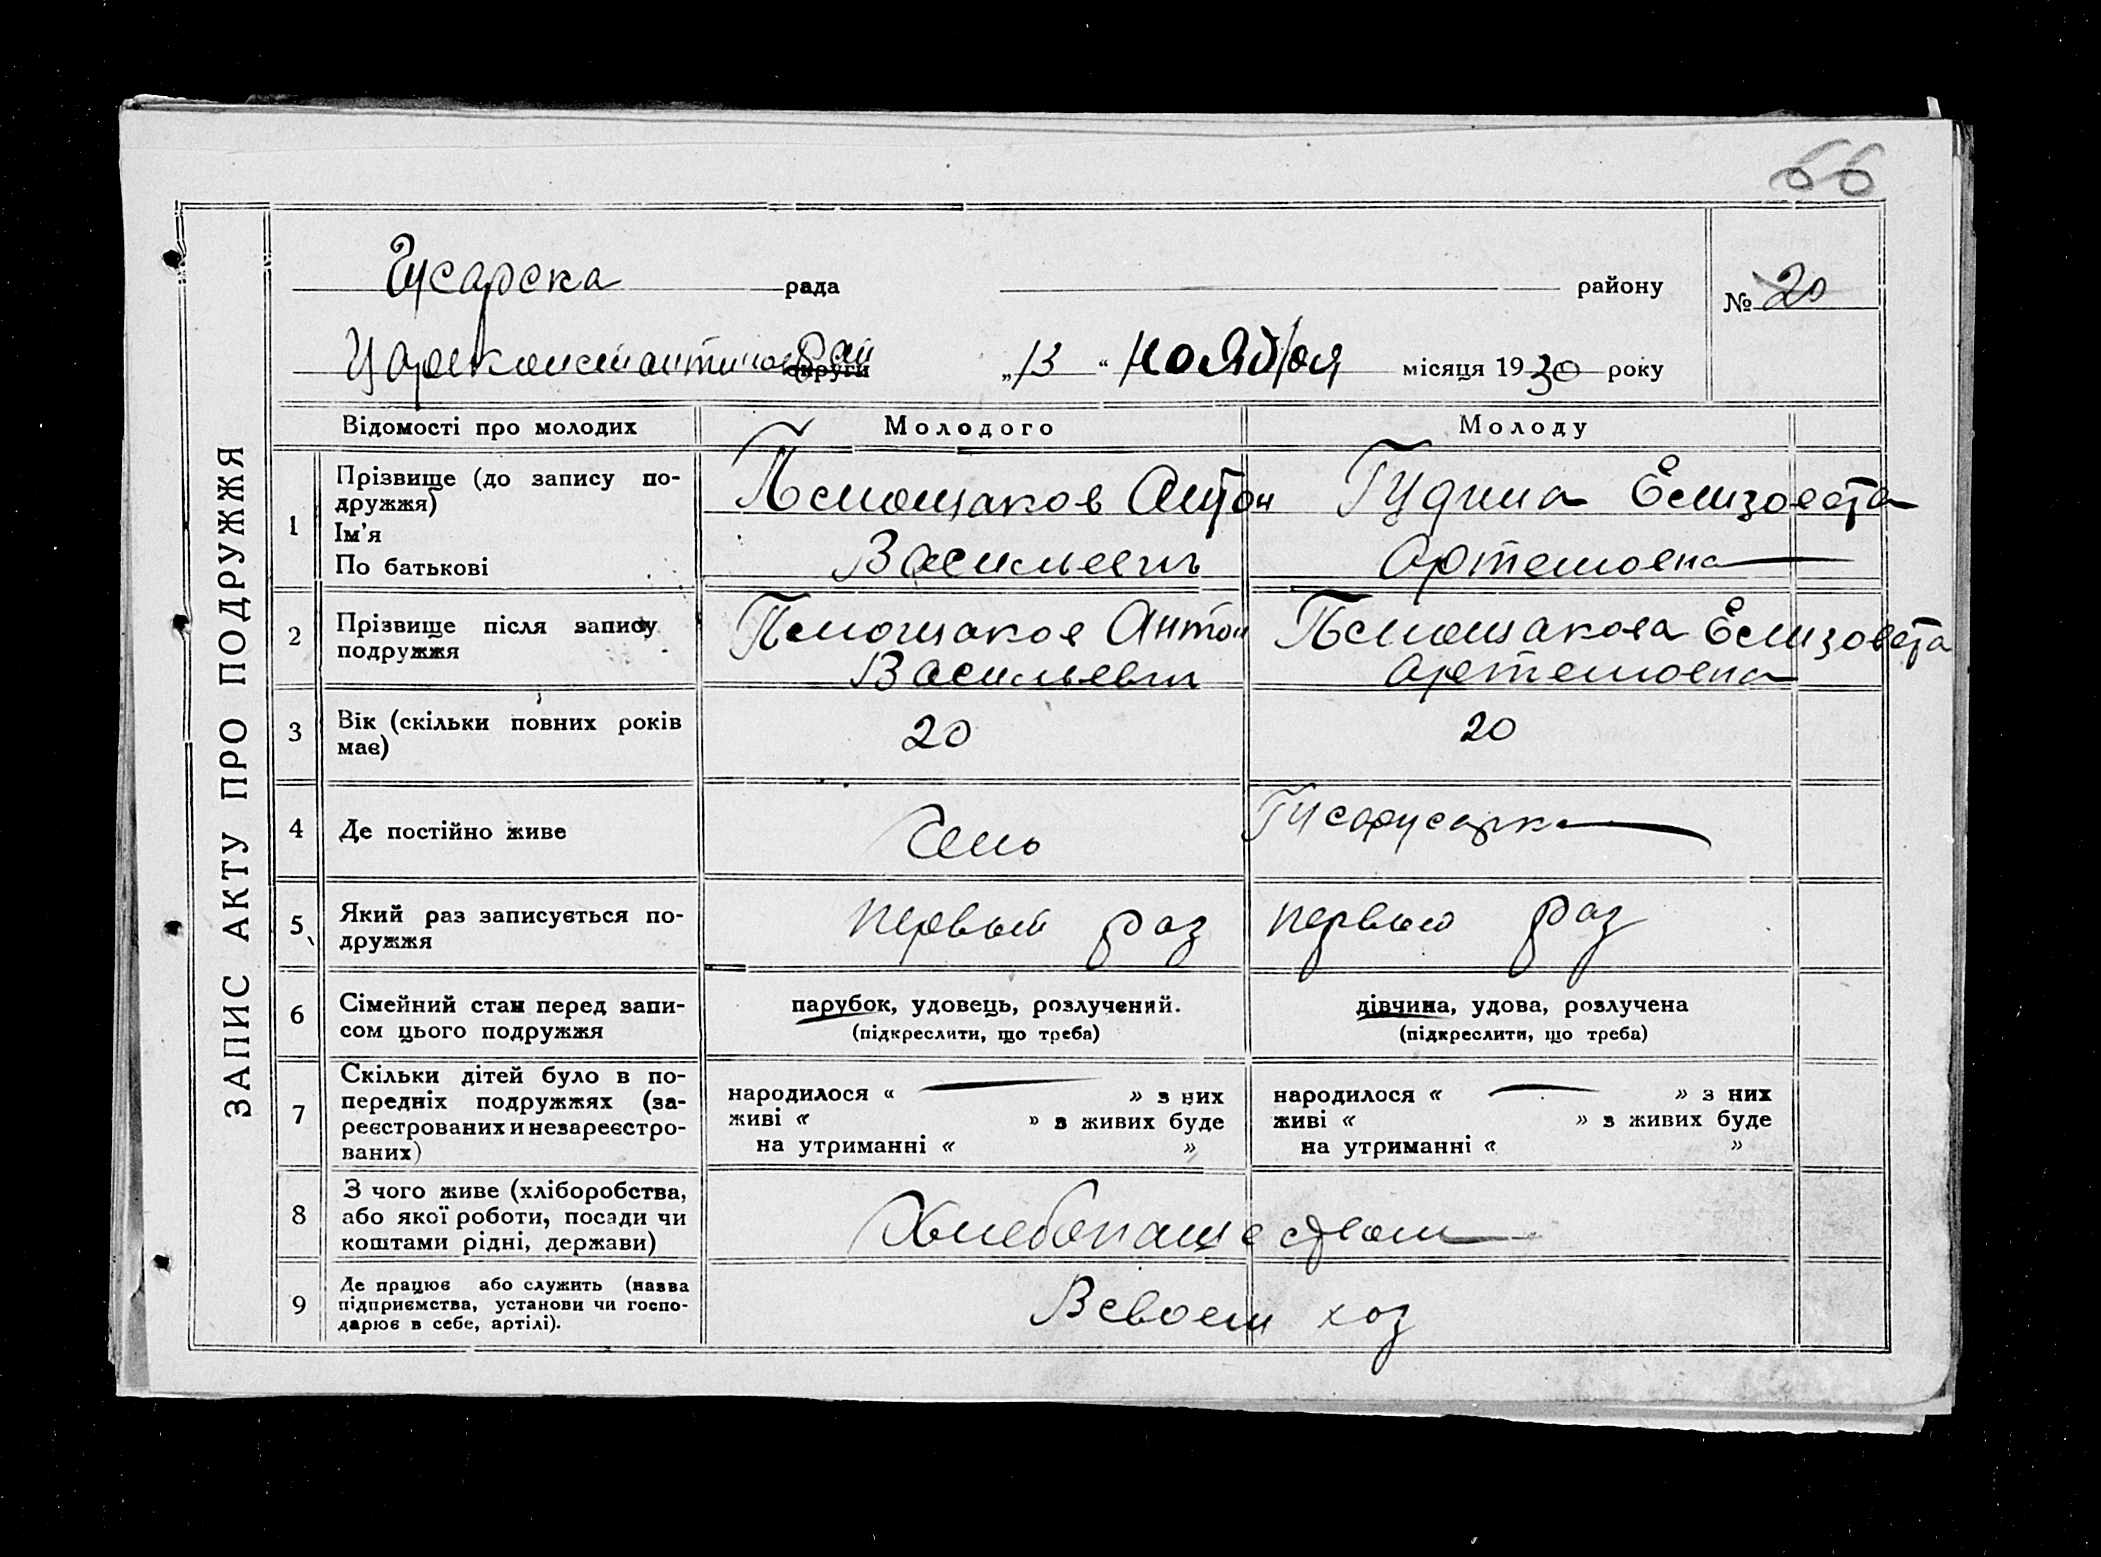 66
Гусарска рада району
№ 20
Цареконстантинов Рай округи „13“ ноября місяця 1930 року
ЗАПИС АКТУ ПРО ПОДРУЖЖЯ
Відомості про молодих Молодого Молоду
1 Прізвище (до запису по-
дружжя)
Ім'я
По батькові
Антон
Васильевич
Гудина Елизовета
Артемовна
2 Прізвище після запису
подружжя
Антон
Васильевич
Елизовета
Артемовна
3 Вік (скільки повних років
має)
20 20
4 Де постійно живе
Село
5 Який раз записується по-
дружжя
первый раз первый раз
6 Сімейний стан перед запи-
сом цього подружжя
парубок, удовець, розлучений.
(підкреслити, що треба)
дівчина, удова, розлучена
(підкреслити, що треба)
7 Скільки дітей було в по-
передніх подружжях (за-
реєстрованих и незареєстро-
ваних)
народилося « » з них
живі « » з живих буде
на утриманні « »
народилося « » з них
живі « » з живих буде
на утриманні « »
8 З чого живе (хліборобства,
або якої роботи, посади чи
коштами рідні, держави)
Хлебопашеством
9 Де працює або служить (назва
підприємства, установи чи госпо-
дарює в себе, артілі).
В своем хоз